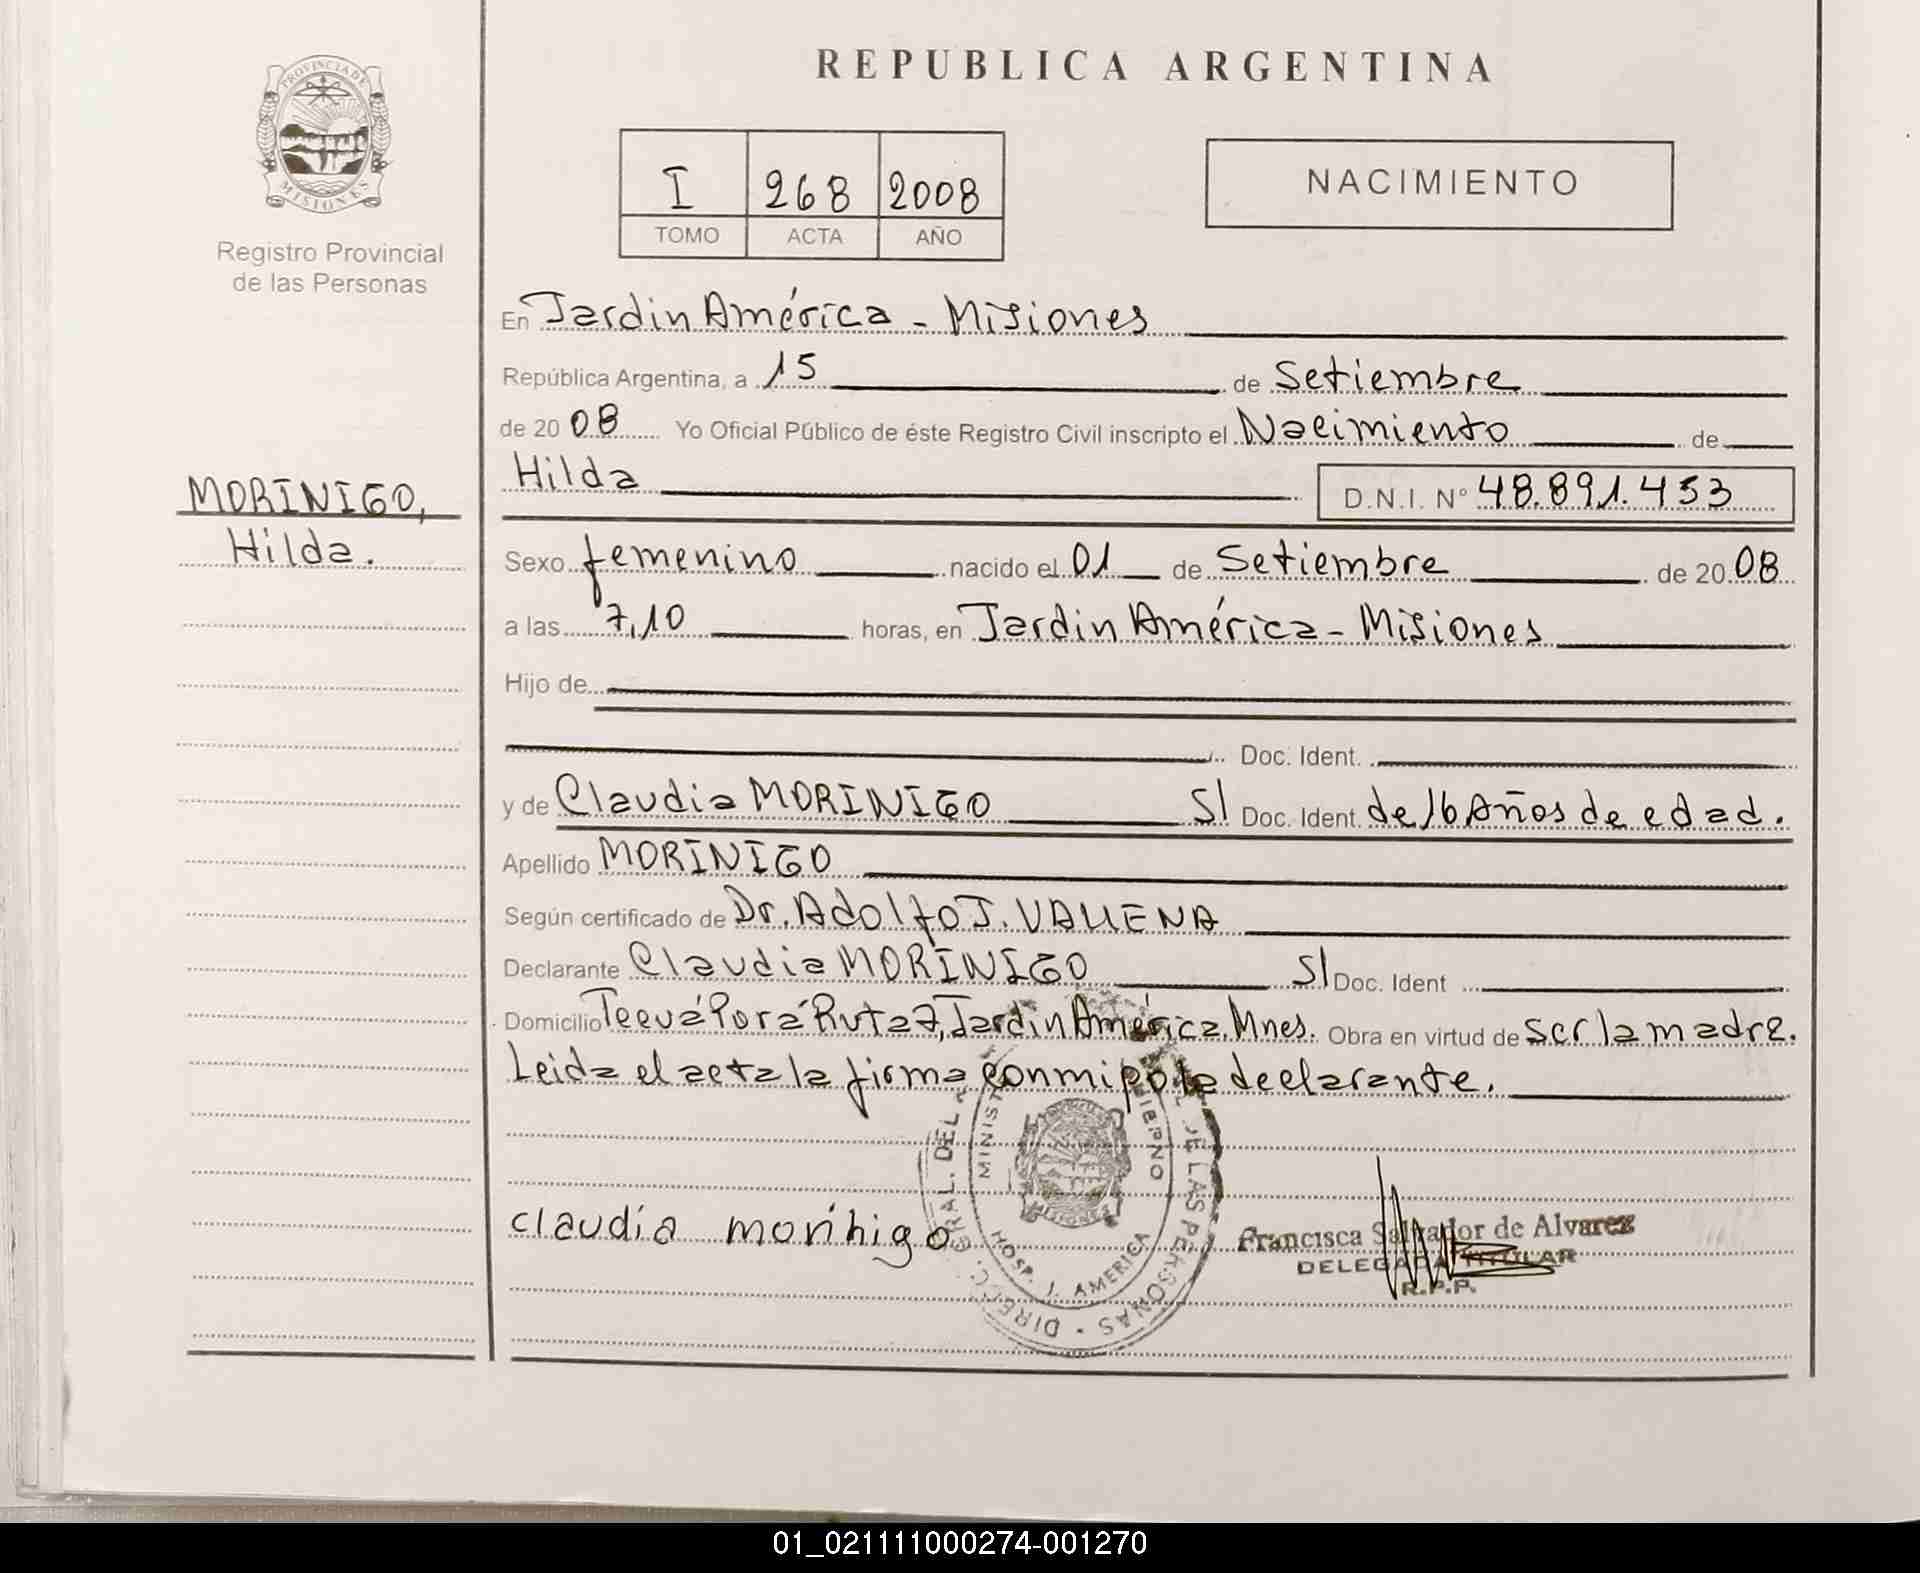 REPUBLICA ARGENTINA
PROVINCIA DE
MISIONES
Registro Provincial
de las Personas
I 268 2008
TOMO ACTA AÑO
NACIMIENTO
En Jardin América - Misiones
República Argentina, a 15 de Setiembre
de 2008 Yo Oficial Público de éste Registro Civil inscripto el Nacimiento de
Hilda D.N.I. Nº 48.891.453
MORINIGO,
Hilda.
Sexo femenino nacido el 01 de Setiembre de 2008
a las 7,10 horas, en Jardin América - Misiones
Hijo de
Doc. Ident.
y de Claudia MORINIGO S/ Doc. Ident. de 16 Años de edad.
Apellido MORINIGO
Según certificado de Dr. Adolfo J. VALLENA
Declarante Claudia MORINIGO S/ Doc. Ident
Domicilio Porá Ruta 7, Jardin América. Mnes. Obra en virtud de ser la madre.
Leida el acta la firma conmigo la declarante.
claudia morinigo
DIREC. GRAL. DEL DE LAS PERSONAS
HOSP. J. AMERICA
MISIONES
Francisca Salvador de Alvarez
DELEGADA TITULAR
R.P.P.
01_021111000274-001270